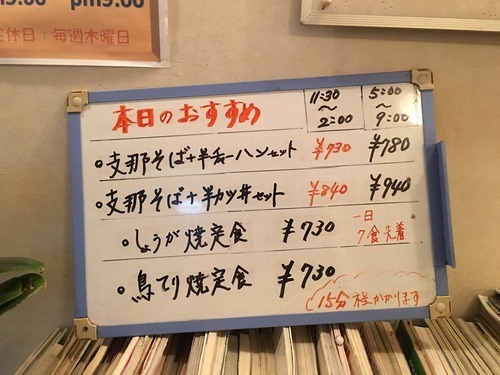 pm9:00
定休日：毎週木曜日
本日のおすすめ
11:30〜2:00
5:00〜9:00
支那そば+半チャーハンセット ¥730 ¥780
支那そば+半カツ丼セット ¥840 ¥940
しょうが焼定食 ¥730 一日7食先着
鳥てり焼定食 ¥730
15分程かかります